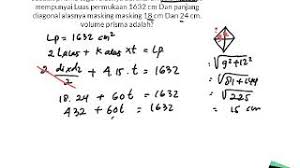 mempunyai Luas permukaan 1632 cm Dan panjang
diagonal alasnya masking masking 18 cm Dan 24 cm.
volume prisma adalah?
Lp = 1632 cm²
2 Lalas + k alas xt = Lp
2 d1xd2/2 + 4.15.t = 1632
18.24 + 60t = 1632
432 + 60t = 1632
= √9²+12²
= √81+144
= √225
= 15 cm